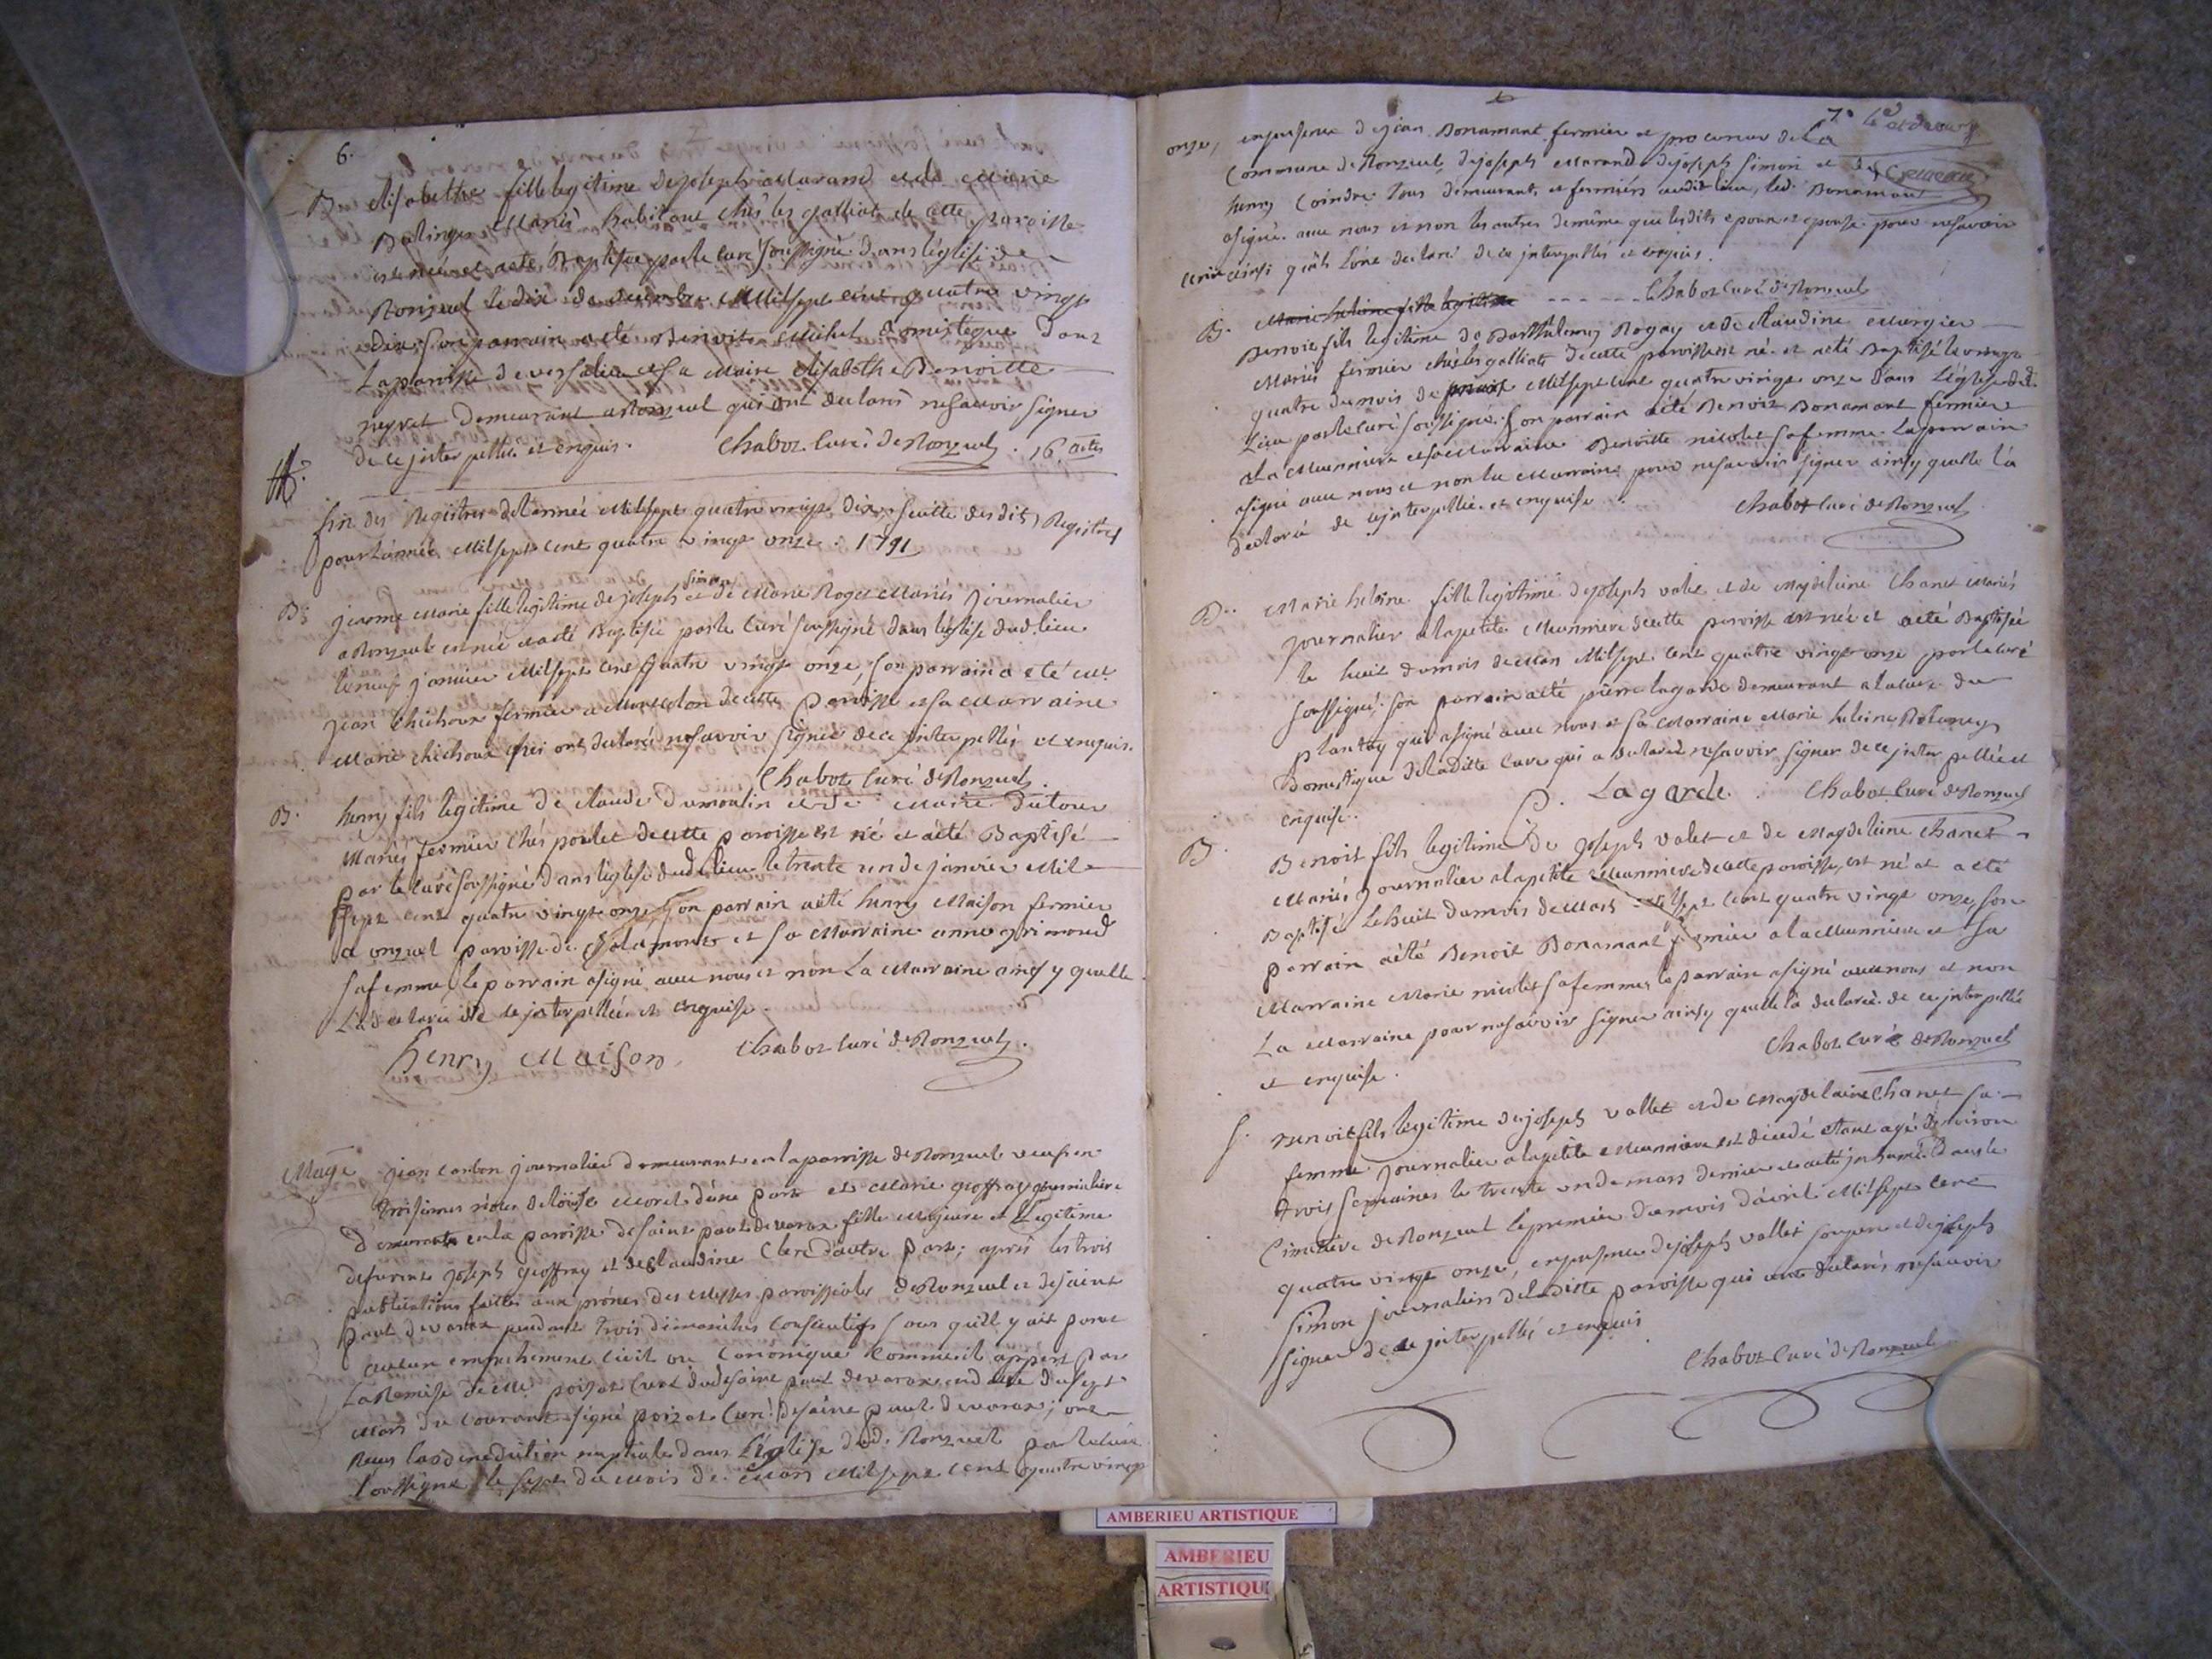 6.
B Elisabethe fille legitime de joseph Marand et de Marie
Bolinger Mariés habitant chés les galliats de cette paroisse
est née et a eté Baptisée par le curé soussigné dans l'église de
Ronzuel le dix de decembre Mil sept cent quatre vingt
dix son parrain a eté Benoit Michel domestique dans
la paroisse de versalieu et sa Maire Elisabethe Benoitte
neyret demeurant a Ronzuel qui ont declaré ne savoir signer
de ce interpellés et enquis. Chabot Curé de Ronzuel. 16 actes
fin des Registres de l'année Mil sept quatre vingt dix, suitte des dits Registres
pour l'année Mil sept cent quatre vingt onze. 1791
B. jeanne Marie fille legitime de joseph simon et de Marie Roget Mariés journalier
a Ronzuel est née et a eté Baptisée par le Curé soussigné dans l'église dud. lieu
le neuf janvier Mil sept cent quatre vingt onze, son parrain a eté
jean chichoux fermier a de cette paroisse et sa Marraine
Marie chichoux qui ont declaré ne savoir signer de ce interpellés et enquis.
Chabot Curé de Ronzuel
B. henry fils legitime de claude dumoulin et de Marie dutour
Mariés fermier chés poulet de cette paroisse est né et a eté Baptisé
par le curé soussigné dans l'église dud. lieu le trente un de janvier Mil
sept cent quatre vingt onze, son parrain a eté henry Maison fermier
a onzuel paroisse de Chalamont et sa Marraine anne grimaud
sa femme, le parrain a signé avec nous et non La Marraine ainsy quelle
L'a declaré de ce interpellée et enquise.
henry Maison. Chabot Curé de Ronzuel.
Mage jean carbon journalier demeurant en la paroisse de Ronzuel veuf en
troisiemes nôces de loüise Morel d'une part et Marie geoffray journaliere
demeurante en la paroisse de saint paul de varax fille Majeure et Legitime
defunt joseph geoffray et de claudine Clerc d'autre part; après les trois
publications faittes aux prônes des Messes paroissiales de Ronzuel et de saint
paul de varax pendant trois dimanches consecutifs sans qu'il y ait parut
aucun empechement civil ou Canonique comme il appert par
La Remise de Mr. poizat Curé dud. saint paul de varax en datte du sept
Mars du courant signé poizat Curé de saint paul de varax; ont
Reçus la Benediction nuptiale dans l'église dud. Ronzuel par le curé
soussigné le sept du Mois de Mars Mil sept cent quatre vingt
7.
onze, en presence de jean Bonamant fermier et procureur de La
Commune de Ronzuel, de joseph Marand de joseph simon et de
henry Coindre tous demeurants et fermiers audit lieu, led. Bonamant
a signé avec nous et non les autres de même que lesdits epoux et epouse pour ne savoir
ecrire ainsi qu'ils l'ont declaré de ce interpellés et enquis.
Chabot Curé de Ronzuel
Marie helene fille legitime
B. Benoit fils legitime de Barthelemy Rogay et de claudine Mergier
Mariés fermier chés les galliats de cette paroisse est né et a eté Baptisé le vingt
quatre du mois de Mil sept cent quatre vingt onze dans l'église dud.
Lieu par le curé soussigné. son parrain a eté Benoit Bonamant fermier
a La Meunniere et sa Marraine Benoitte nicolet sa femme. Le parrain
a signé avec nous et non la Marraine pour ne savoir signer ainsy quelle l'a
declaré de ce interpellée et enquise.
Chabot Curé de Ronzuel
B. Marie helene fille legitime de joseph valet et de Magdeleine Chanet Mariés
journalier a la petite Meunniere de cette paroisse est née et a eté Baptisée
le huit du mois de Mars Mil sept cent quatre vingt onze par le curé
soussigné. son parrain a eté pierre lagarde demeurant a la cure du
plantay qui a signé avec nous et sa Marraine Marie heleine
Domestique de laditte cure qui a declaré ne savoir signer de ce interpellée et
enquise. P. Lagarde. Chabot Curé de Ronzuel
B. Benoit fils legitime de joseph valet et de Magdeleine Chanet
Mariés journalier a la petite Meunniere de cette paroisse, est né et a eté
Baptisé Le huit du mois de Mars Mil sept cent quatre vingt onze, son
parrain a eté Benoit Bonamant fermier a la Meunniere et sa
Marraine Marie nicolet sa femme, le parrain a signé avec nous et non
La Marraine pour ne savoir signer ainsy quelle l'a declaré de ce interpellée
et enquise. Chabot Curé de Ronzuel
S. Benoit fils legitime de joseph vallet et de Magdelaine Chanet sa
femme journalier a la petite Meunniere est decedé etant agé d'environ
trois semaines le trente un de mars dernier et a eté inhumé dans le
Cimetiere de Ronzuel le premier du mois d'avril Mil sept cent
quatre vingt onze, en presence de joseph vallet son pere et de joseph
simon journaliers de laditte paroisse qui ont declarés ne savoir
signer de ce interpellés et enquis
Chabot Curé de Ronzuel
AMBERIEU ARTISTIQUE
AMBERIEU
ARTISTIQUE